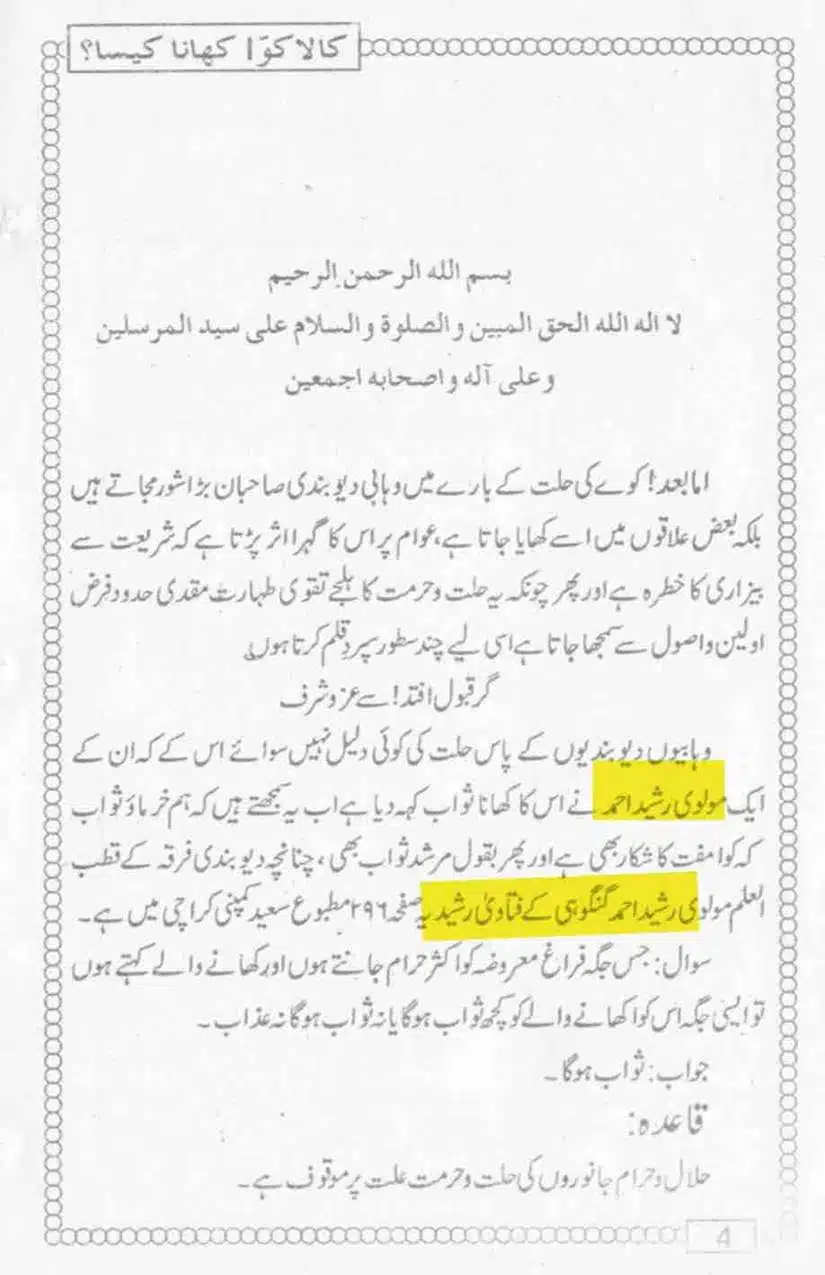 کالا کوّا کھانا کیسا؟
بسم الله الرحمن الرحیم
لا اله الله الحق المبین والصلوة والسلام علی سید المرسلین
وعلی آله واصحابه اجمعین
امابعد! کوے کی حلت کے بارے میں وہابی دیوبندی صاحبان بڑا شور مچاتے ہیں
بلکہ بعض علاقوں میں اسے کھایا جاتا ہے، عوام پر اس کا گہرا اثر پڑتا ہے کہ شریعت سے
بیزاری کا خطرہ ہے اور پھر چونکہ یہ حلت وحرمت کا تقویٰ طہارت مقدی حدود فرض
اولین واصول سے سمجھا جاتا ہے اسی لیے چند سطور سپرد قلم کرتا ہوں
گر قبول افتد! سے عز و شرف
وہابیوں دیوبندیوں کے پاس حلت کی کوئی دلیل نہیں سوائے اس کے کہ ان کے
ایک مولوی رشید احمد نے اس کا کھانا ثواب کہہ دیا ہے اب یہ سمجھتے ہیں کہ ہم خرماؤ ثواب
کہ کوا مفت کا شکار بھی ہے اور پھر بقول مرشد ثواب بھی، چنانچہ دیوبندی فرقہ کے قطب
العلم مولوی رشید احمد گنگوہی کے فتاویٰ رشیدیہ صفحہ ۲۹۶ مطبوع سعید کمپنی کراچی میں ہے۔
سوال: جس جگہ فراغ معروضہ کو اکثر حرام جانتے ہوں اور کھانے والے کہتے ہوں
تو ایسی جگہ اس کوا کھانے والے کو کچھ ثواب ہوگا یا نہ ثواب ہوگا نہ عذاب۔
جواب: ثواب ہوگا۔
قاعدہ:
حلال وحرام جانوروں کی حلت وحرمت علت پر موقوف ہے۔
4